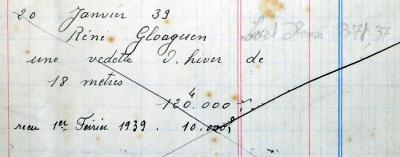 20 Janvier 39
Réné Gloaguen
une vedette d'hiver de
18 mètres
120.000
recu 1er Février 1939. 10.000